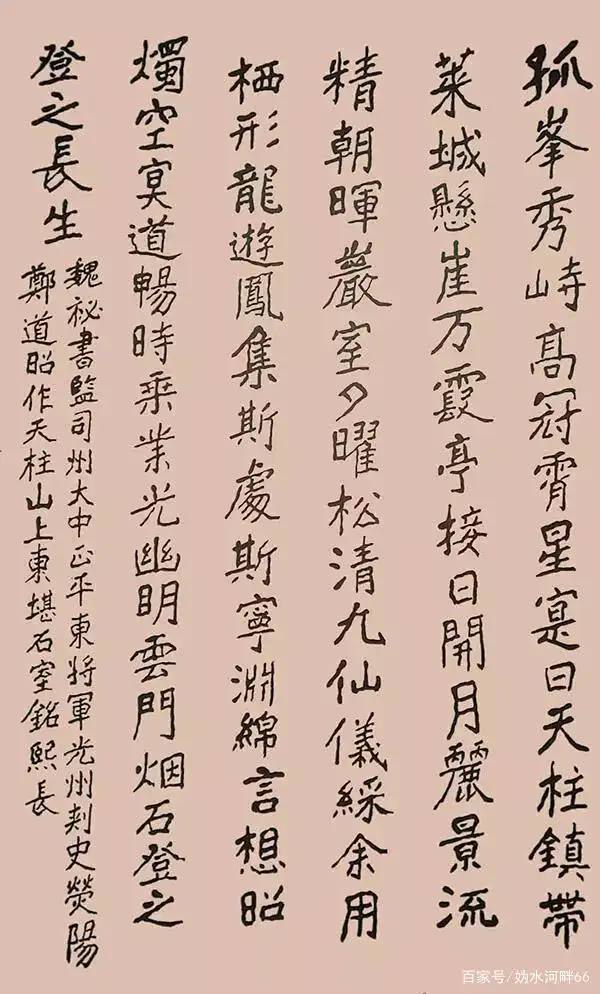 孤峯秀峙高冠霄星寔曰天柱鎮帶
萊城懸崖万霞亭接日開月麗景流
精朝暉巖室夕曜松清九仙儀綵余用
栖形龍遊鳳集斯處斯寧淵綿言想昭
燭空冥道暢時乘業光幽明雲門烟石登之
登之長生
魏祕書監司州大中正平東將軍光州刺史熒陽
鄭道昭作天柱山上東堪石室銘熙長
百家号/妫水河畔66